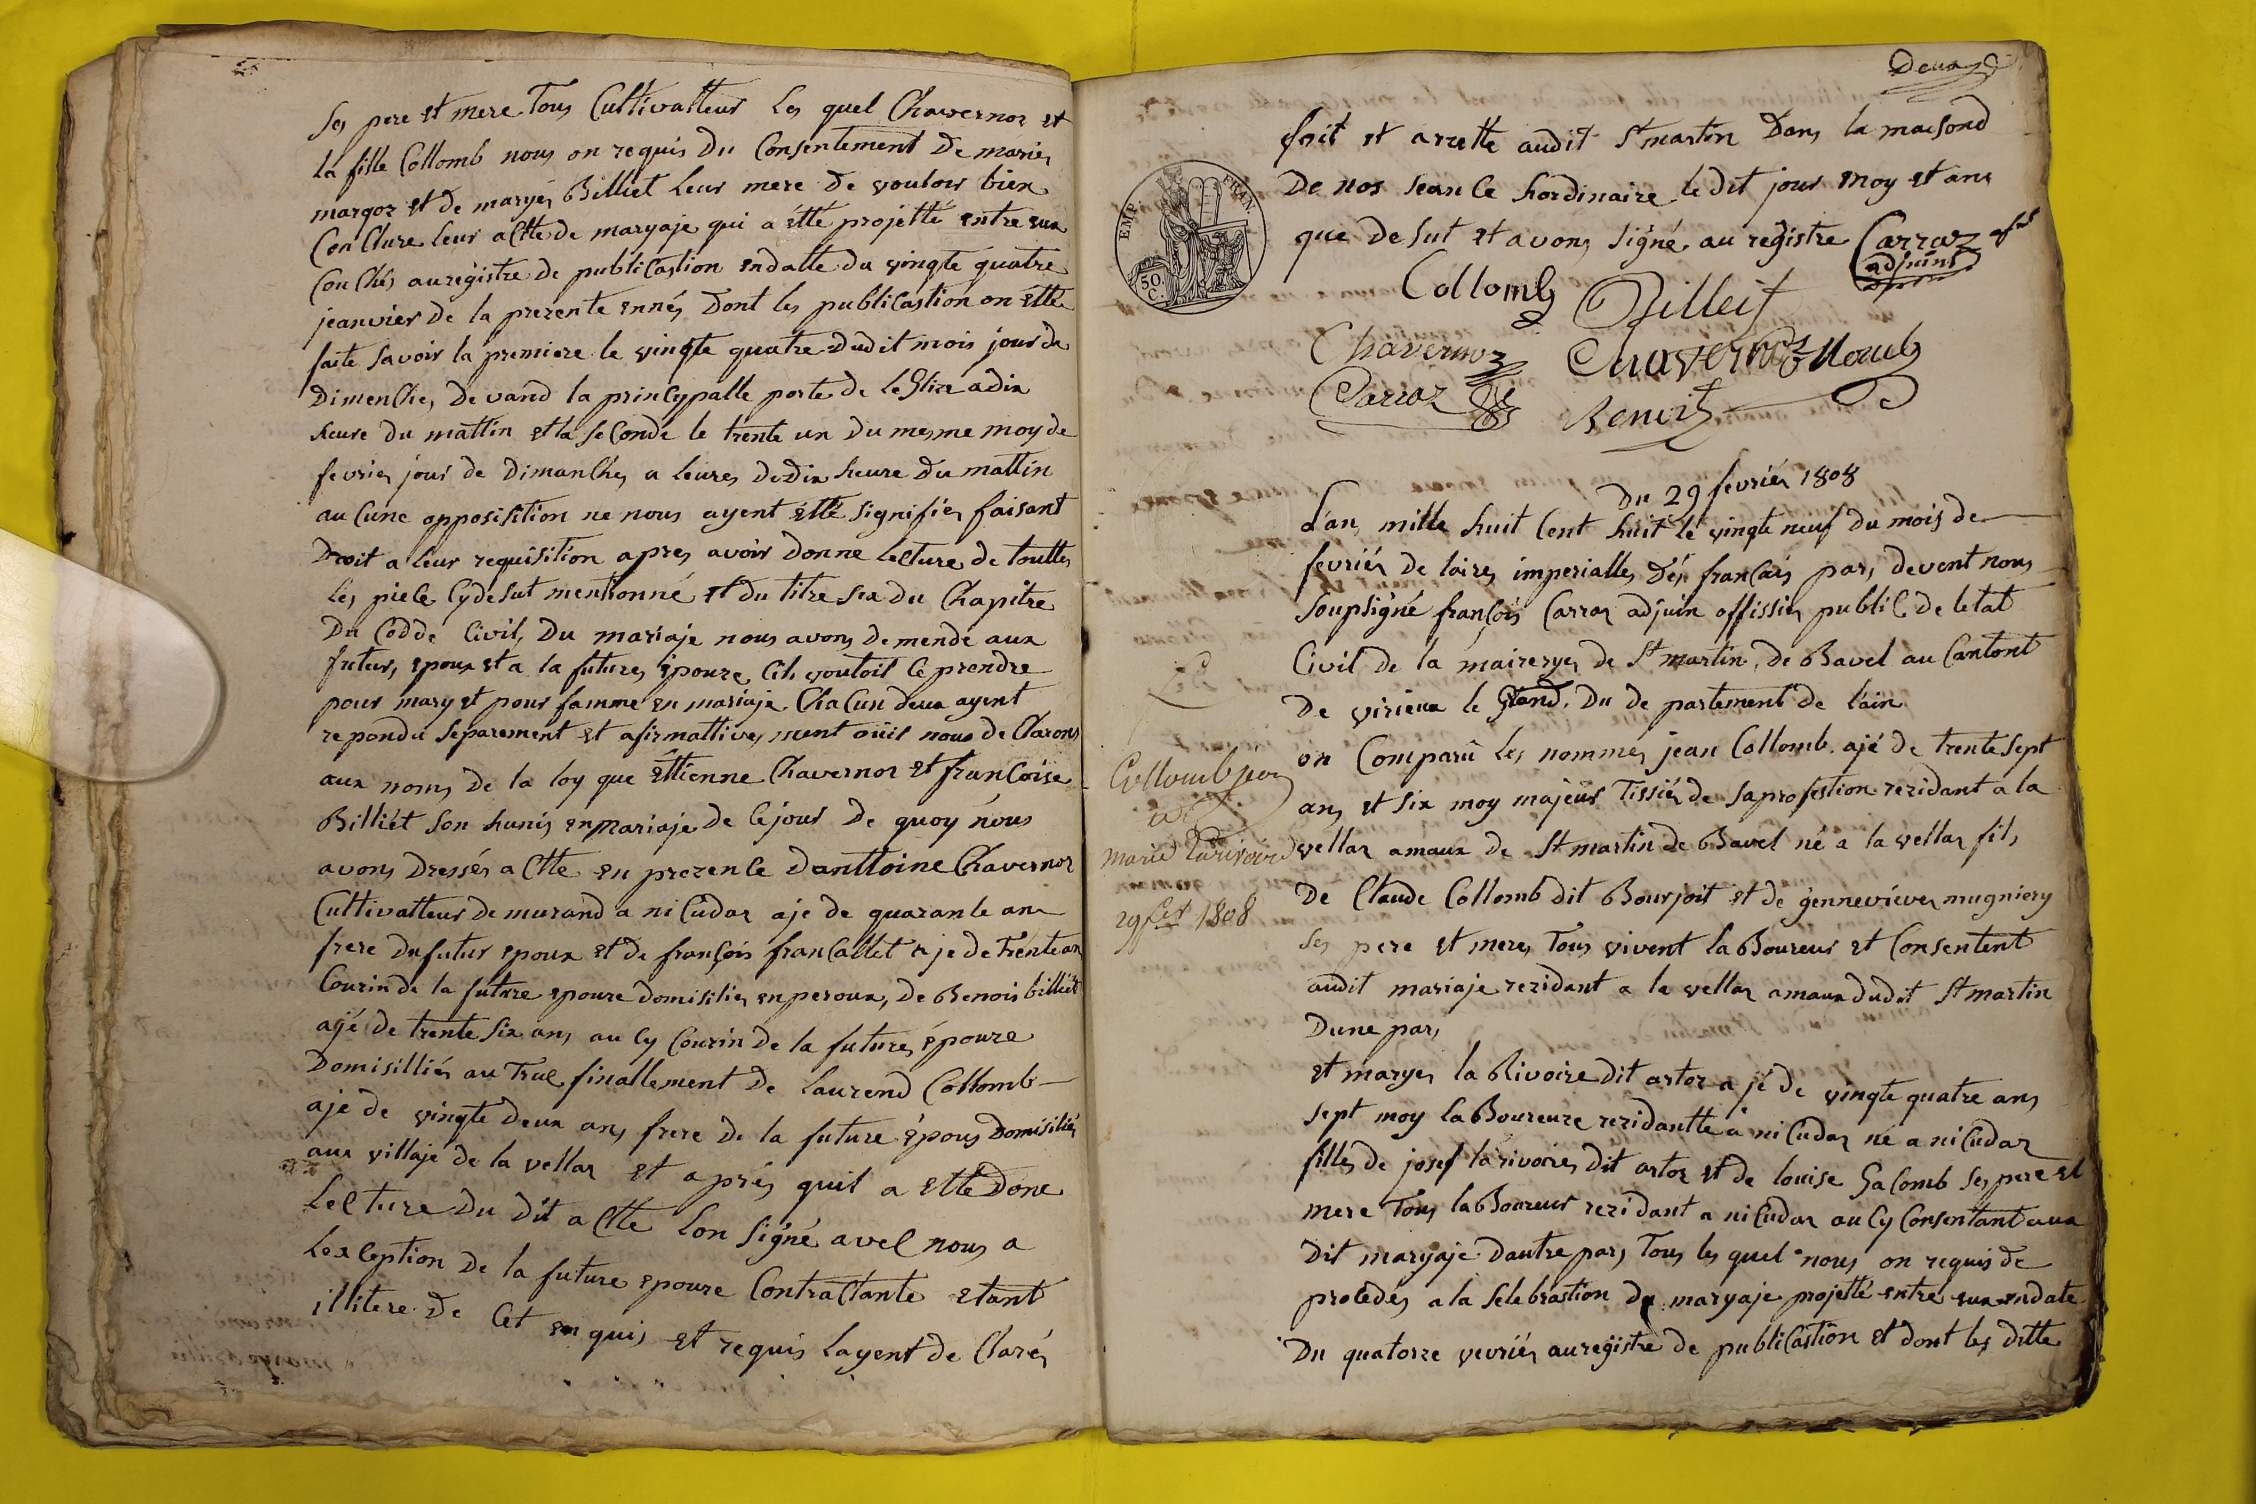 Ses pere et mere Tous Cultivatteur Les quel Chavernoz et
la fille Collomb nous on requis Du Consentement De marie,
margoz et de marye, Billiet Leur mere de vouloir bien
Conclure leur actte de maryaje qui a étté projetté entre eux
Couchés au regîstre de publicastion en datte du vingte quatre
jeanvier de la prezente ennés Dont les publicastion on étté
faite savoir la premiere le vingte quatre dudit mois jour de
Dimenche, de vand la princypalle porte de leglize a dix
heure du mattin et la seconde le trente un du mesme moy de
fevrier jour de Dimanche, a leures de dix heure du mattin
aucune opposistition ne nous ayent étté signifiér faisant
Droit a leur requisition apres avoir donne lecture de touttes
les piece cy desut mentionné et du titre six du Chapitre
Du Codde Civil, Du mariaje nous avons demende aux
futur, epoux et a la future, épouze cils vouloit ce prendre
pour mary et pour famme en mariaje Chacun deux ayent
repondu separement et afirmattive, ment ouil nous de Clarons
aux noms de la loy que Ettienne Chavernoz et francoise
Billiét son hunis en mariaje de ce jour de quoy nous
avons dressés actte en prezence danttoine Chavernoz
Cultivatteur de murand a ni Cudaz aje de quarante an
frere du futur epoux et de françois francallet aje de trente an
Couzin de la future epouze domisilier en peroux, de Benois billiet
ajé de trente six ans au cy Couzin de la future, épouze
Domisilliér au Truc finallement de laurend Collomb
aje de vingte deux ans frere de la future épous Domisiliér
aux villaje de la vellaz et aprés quil a ette done
lecture du dit actte lon signé avec nous a
lexception de la future epouze Contractante etant
illitere de cet en quis et requis layent de Clarér
Deux
fait et arrette audit St martin Dans la maisond
De nos seance hordinaire le dit jour moy et ans
que desut et avons signé au registre Carraz
adjuint
EMP. FRAN.
50. C.
Collomb Billeit
Chavernoz Chavernoz
Carraz Benoit
Du 29 fevriér 1808
Lan mille huit Cent huit le vingte neuf du mois de
fevriér de laires imperialles dés francais pars devent nous
soupsigné françois Carraz adjuin offissier public de letat
Civil de la mairerye, de St martin de Bavel au Cantont
De virieux le Grand, Du de partement de lain
on Comparû les nommés jean Collomb ajé de trente sept
ans et six moy majeur Tissiér de sa profestion rezidant a la
vellaz amaux de St martin de Bavel né a la vellaz fils
De Claude Collomb dit Bourjoit et de genneviéve, mugniery
ses pere et mere, Tous vivent laBoureur et Consentent
audit mariaje rezidant a la vellaz amaux dudit St martin
Dune pars
Collomb jean
et
marie Larivoire
29 fer 1808
et marye, la Rivoire dit artoz ajé de vingte quatre ans
sept moy laBoureuze rezidantte a ni Cudaz né a ni Cudaz
filles de josef larivoire, dit artoz et de louise Gacomb ses pere et
mere Tous laBoureur rezidant a ni Cudaz au cy Consentant aux
dit maryaje dautre pars Tous les quel nous on requis de
procedés a la selebrastion du maryaje projetté entre eux en date
Du quatorze vevriér au registre de publicastion et dont les ditte